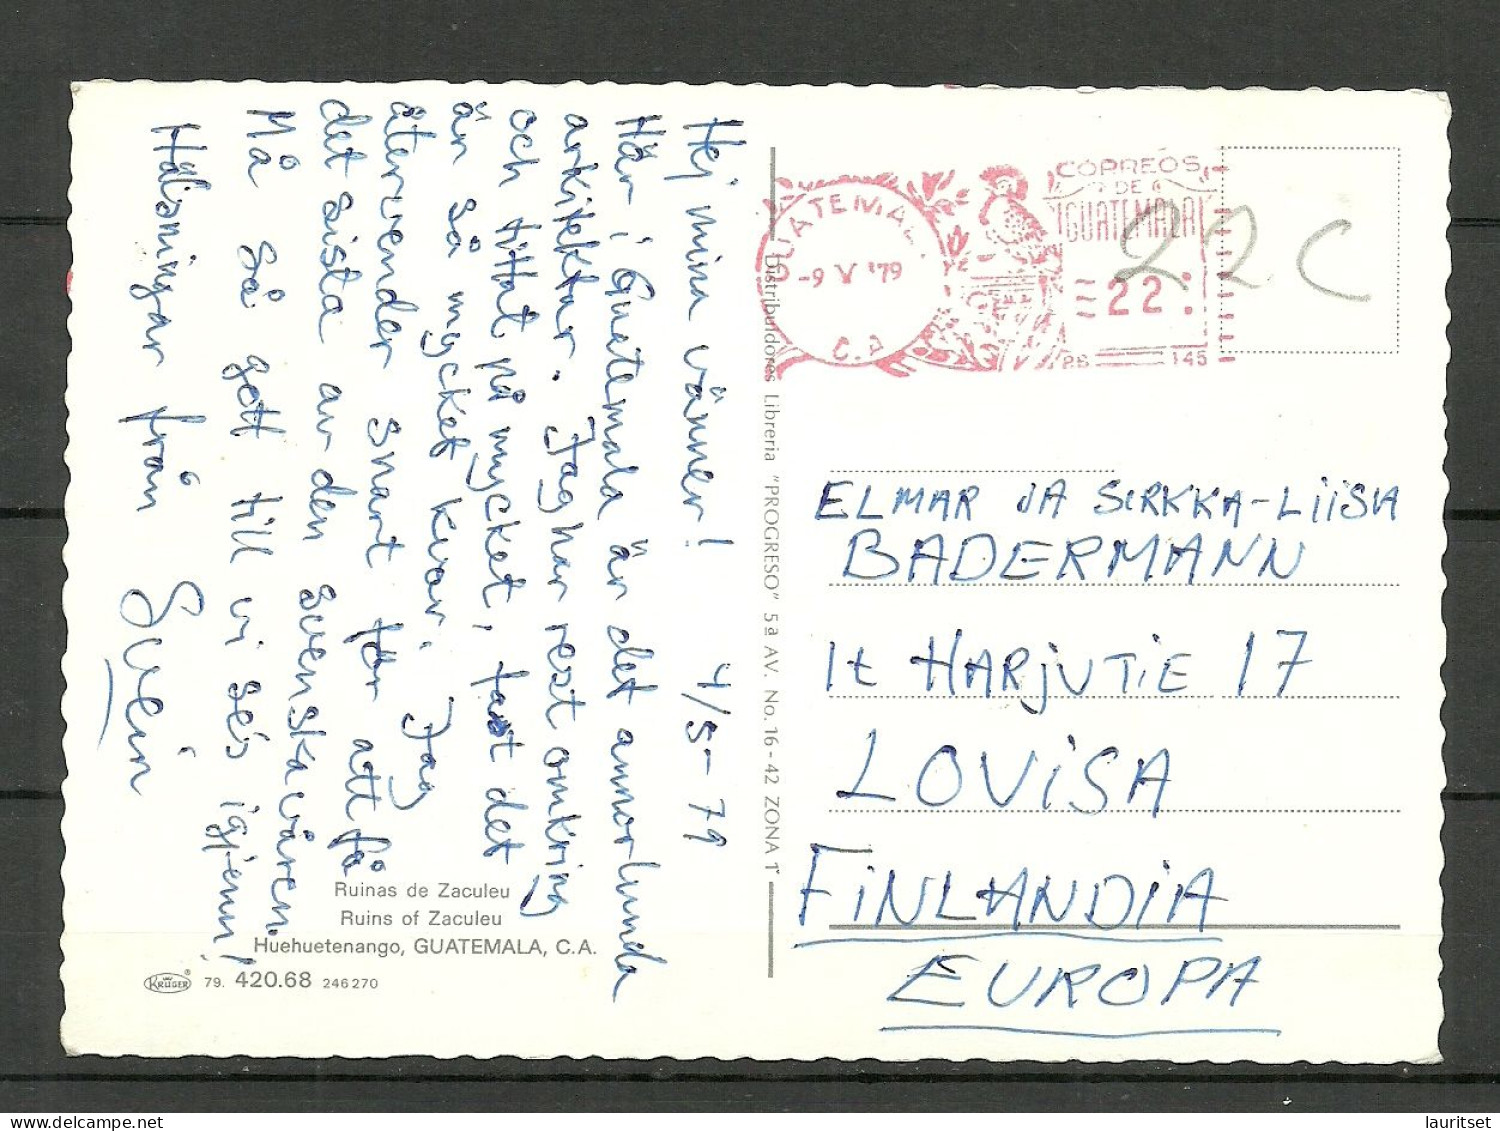 Hej mina vänner! 4/5-79
Här i Guatemala är det annorlunda
arkitektur. Jag har rest omkring
och tittat på mycket, fast det
är så mycket kvar. Jag
återvänder snart för att få
det sista av den svenska våren.
Må så gott till vi ses igjenn!
Hälsningar från Svein
Ruinas de Zaculeu
Ruins of Zaculeu
Huehuetenango, GUATEMALA, C.A.
KRÜGER 79. 420.68 246270
Distribuidores Libreria "PROGRESO" 5ª AV. No. 16-42 ZONA 1ª
GUATEMALA
-9 V '79
C.A
CORREOS
DE
GUATEMALA
22
PB 145
22C
ELMAR JA SIRKKA-LIISA
BADERMANN
It HARJUTIE 17
LOVISA
FINLANDIA
EUROPA
lauritset